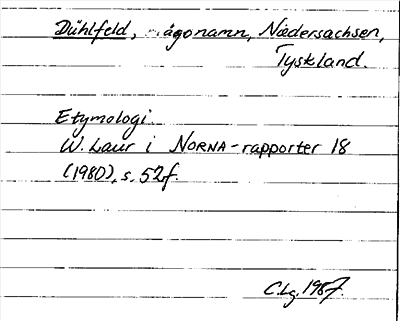 Dühlfeld, ägonamn, Niedersachsen,
Tyskland.
Etymologi.
W. Laur i NORNA-rapporter 18
(1980), s. 52f.
C.Lg. 1987.